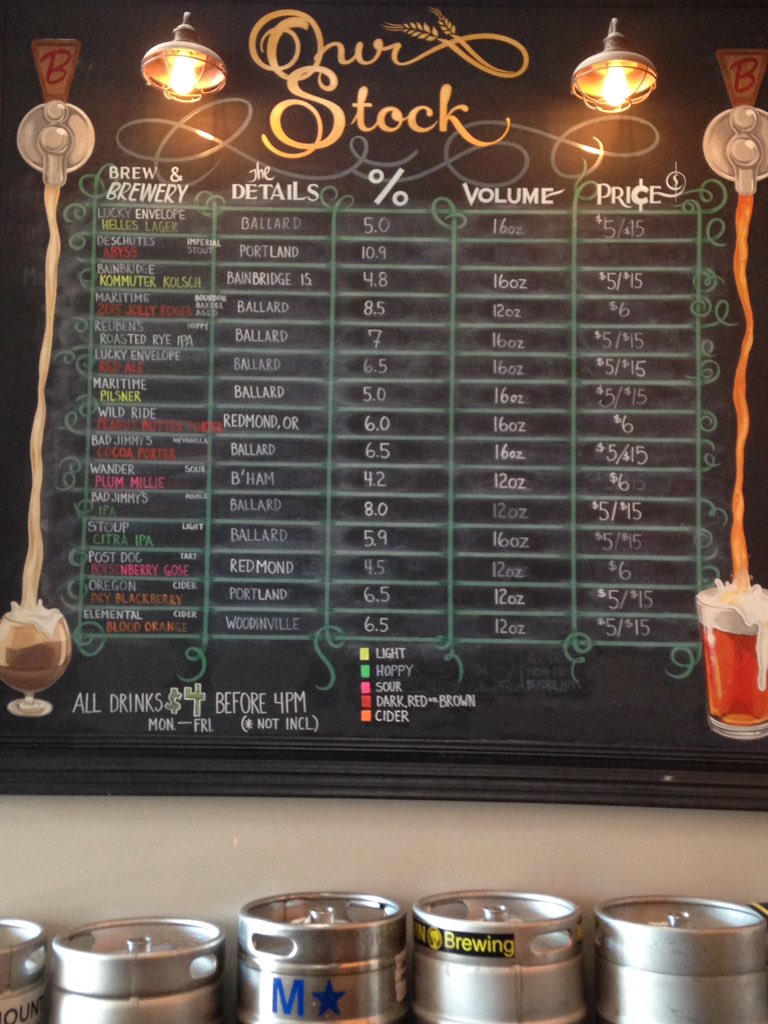 B
B
Our
Stock
BREW & BREWERY The DETAILS % VOLUME PRI¢E $
LUCKY ENVELOPE
HELLES LAGER BALLARD 5.0 16oz $5/$15
DESCHUTES IMPERIAL STOUT
ABYSS PORTLAND 10.9
BAINBRIDGE
KOMMUTER KOLSCH BAINBRIDGE IS. 4.8 16oz $5/$15
MARITIME BOURBON BARREL AGED
2015 JOLLY ROGER BALLARD 8.5 12oz $6
REUBEN'S HOPPY
ROASTED RYE IPA BALLARD 7 16oz $5/$15
LUCKY ENVELOPE
RED ALE BALLARD 6.5 16oz $5/$15
MARITIME
PILSNER BALLARD 5.0 16oz $5/$15
WILD RIDE
PEANUT BUTTER PORTER REDMOND, OR 6.0 16oz $6
BAD JIMMY'S W/VANILLA
COCOA PORTER BALLARD 6.5 16oz $5/$15
WANDER SOUR
PLUM MILLIE B'HAM 4.2 12oz $6
BAD JIMMY'S DOUBLE
IPA BALLARD 8.0 12oz $5/$15
STOUP LIGHT
CITRA IPA BALLARD 5.9 16oz $5/$15
POST DOC TART
BOYSENBERRY GOSE REDMOND 4.5 12oz $6
OREGON CIDER
DRY BLACKBERRY PORTLAND 6.5 12oz $5/$15
ELEMENTAL CIDER
BLOOD ORANGE WOODINVILLE 6.5 12oz $5/$15
LIGHT
HOPPY
SOUR
DARK, RED OR BROWN
CIDER
ALL DRINKS $4 BEFORE 4PM
MON.—FRI. (* NOT INCL)
MON-FRI
BEFORE 4PM
Brewing
M